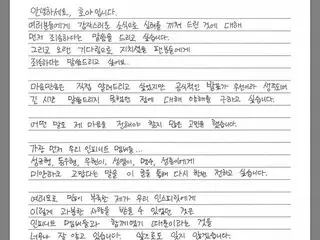 안녕하세요, 호야입니다.
여러분들에게 갑작스러운 소식으로 심려를 끼쳐 드린 것에 대해
먼저 죄송하다는 말씀을 드리고 싶습니다.
그리고 오랜 기다림으로 지치셨을 팬분들에게
죄송하다는 말씀드리고 싶어요..
마음만큼은 직접 알려드리고 싶었지만 공식적인 발표가 우선이라 생각되어
긴 시간 말씀드리지 못했던 점에 대해 이해를 구하고 싶습니다.
어떤 말로 제 마음을 전해야 할지 많은 고민을 했습니다.
가장 먼저 우리 인피니트 멤버들...
성규형, 동우형, 우현이, 성열이, 명수, 성종이에게
미안하고 고맙다는 말을 이 글을 통해 다시 한번 전하고 싶습니다.
여러모로 많이 부족한 제가 우리 인스피릿에게
이렇게 과분한 사랑을 받을 수 있었던 것은
인피니트 멤버들과 함께였기 때문이라는 것을
너무나 잘 알고 있습니다. 앞으로도 잊지 않겠습니다.